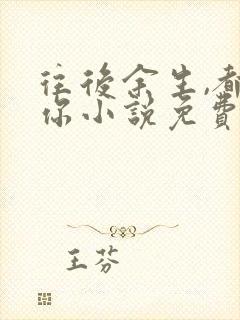 往後余生,都
你小說免費
王芬